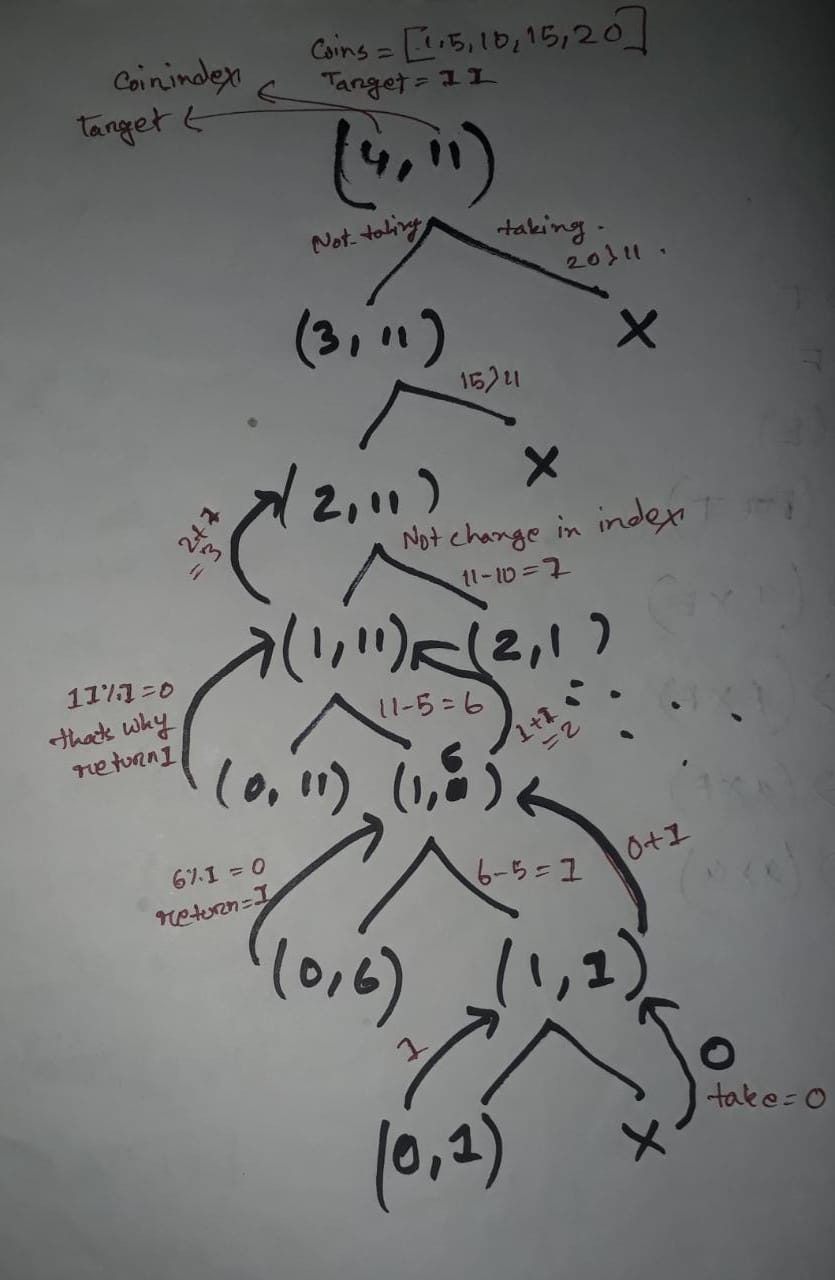 Coins = [1,5,10,15,20]
Coinindex Target = 11
Target
(4,11)
Not-taking taking.
20>11.
(3,11)
15>11
X
X
(2,11)
Not change in index
11-10=1
(1,11) (2,1)
11%1=0
thats why
return 1
11-5=6
1+1
=2
(0,11) (1,6)
0+1
6%1=0
return=1
6-5=1
(0,6) (1,1)
1
0
take=0
(0,1) X